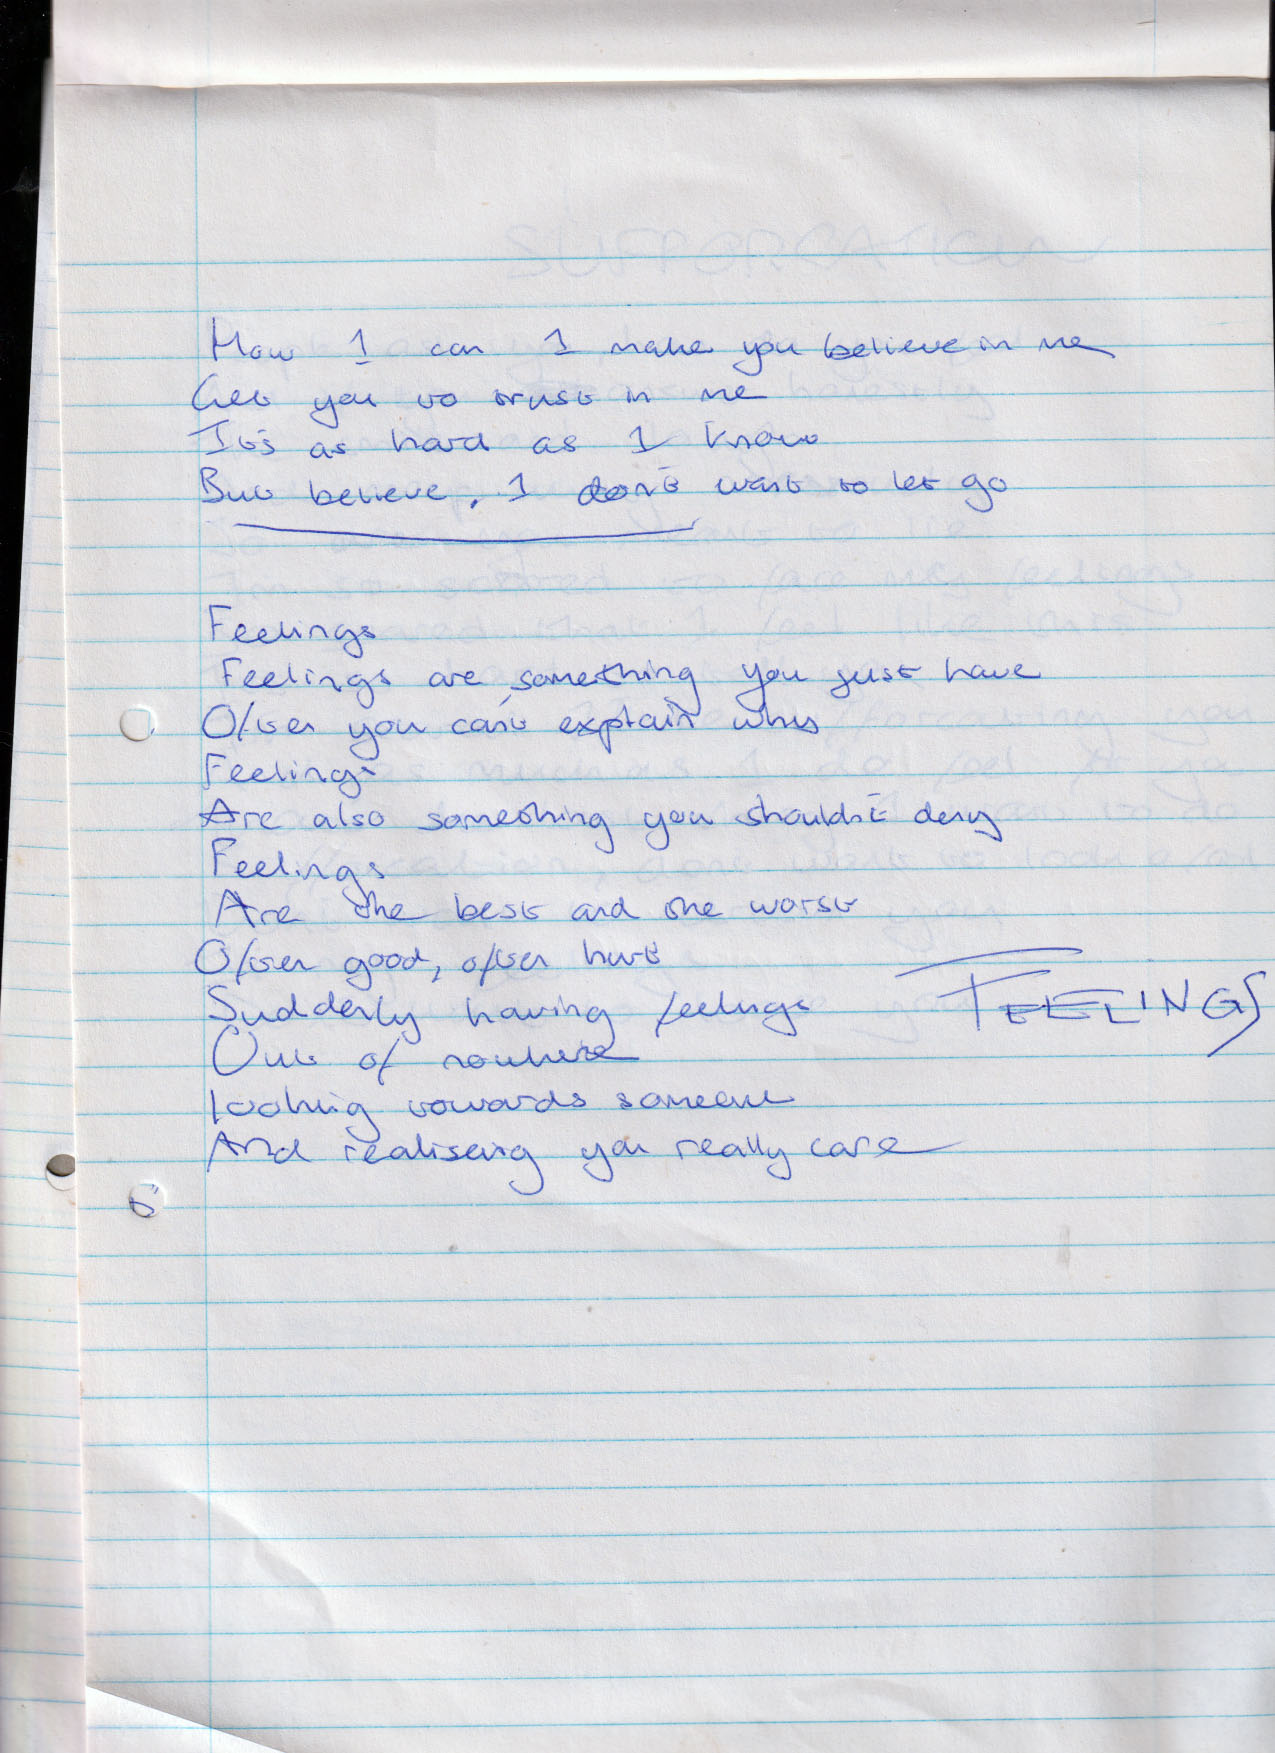 How I can I make you believe in me
Get you to trust in me
It's as hard as I know
But believe, I don't want to let go
Feelings
Feelings are something you just have
Often you can't explain why
Feelings
Are also something you shouldn't deny
Feelings
Are the best and the worst
Often good, often hurt
Suddenly having feelings
FEELINGS
Out of nowhere
looking towards someone
And realiseing you really care